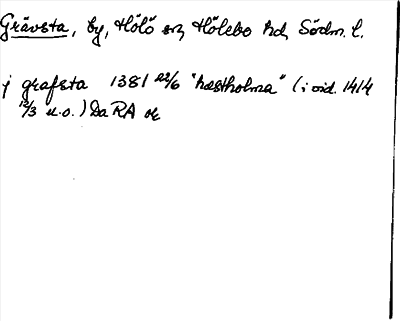 Grävsta, by, Hölö sn, Hölebo hd, Södm. l.
j grafsta 1381 22/6 "hæstholma" (i vid. 1414
12/3 u.o.) Da RA or